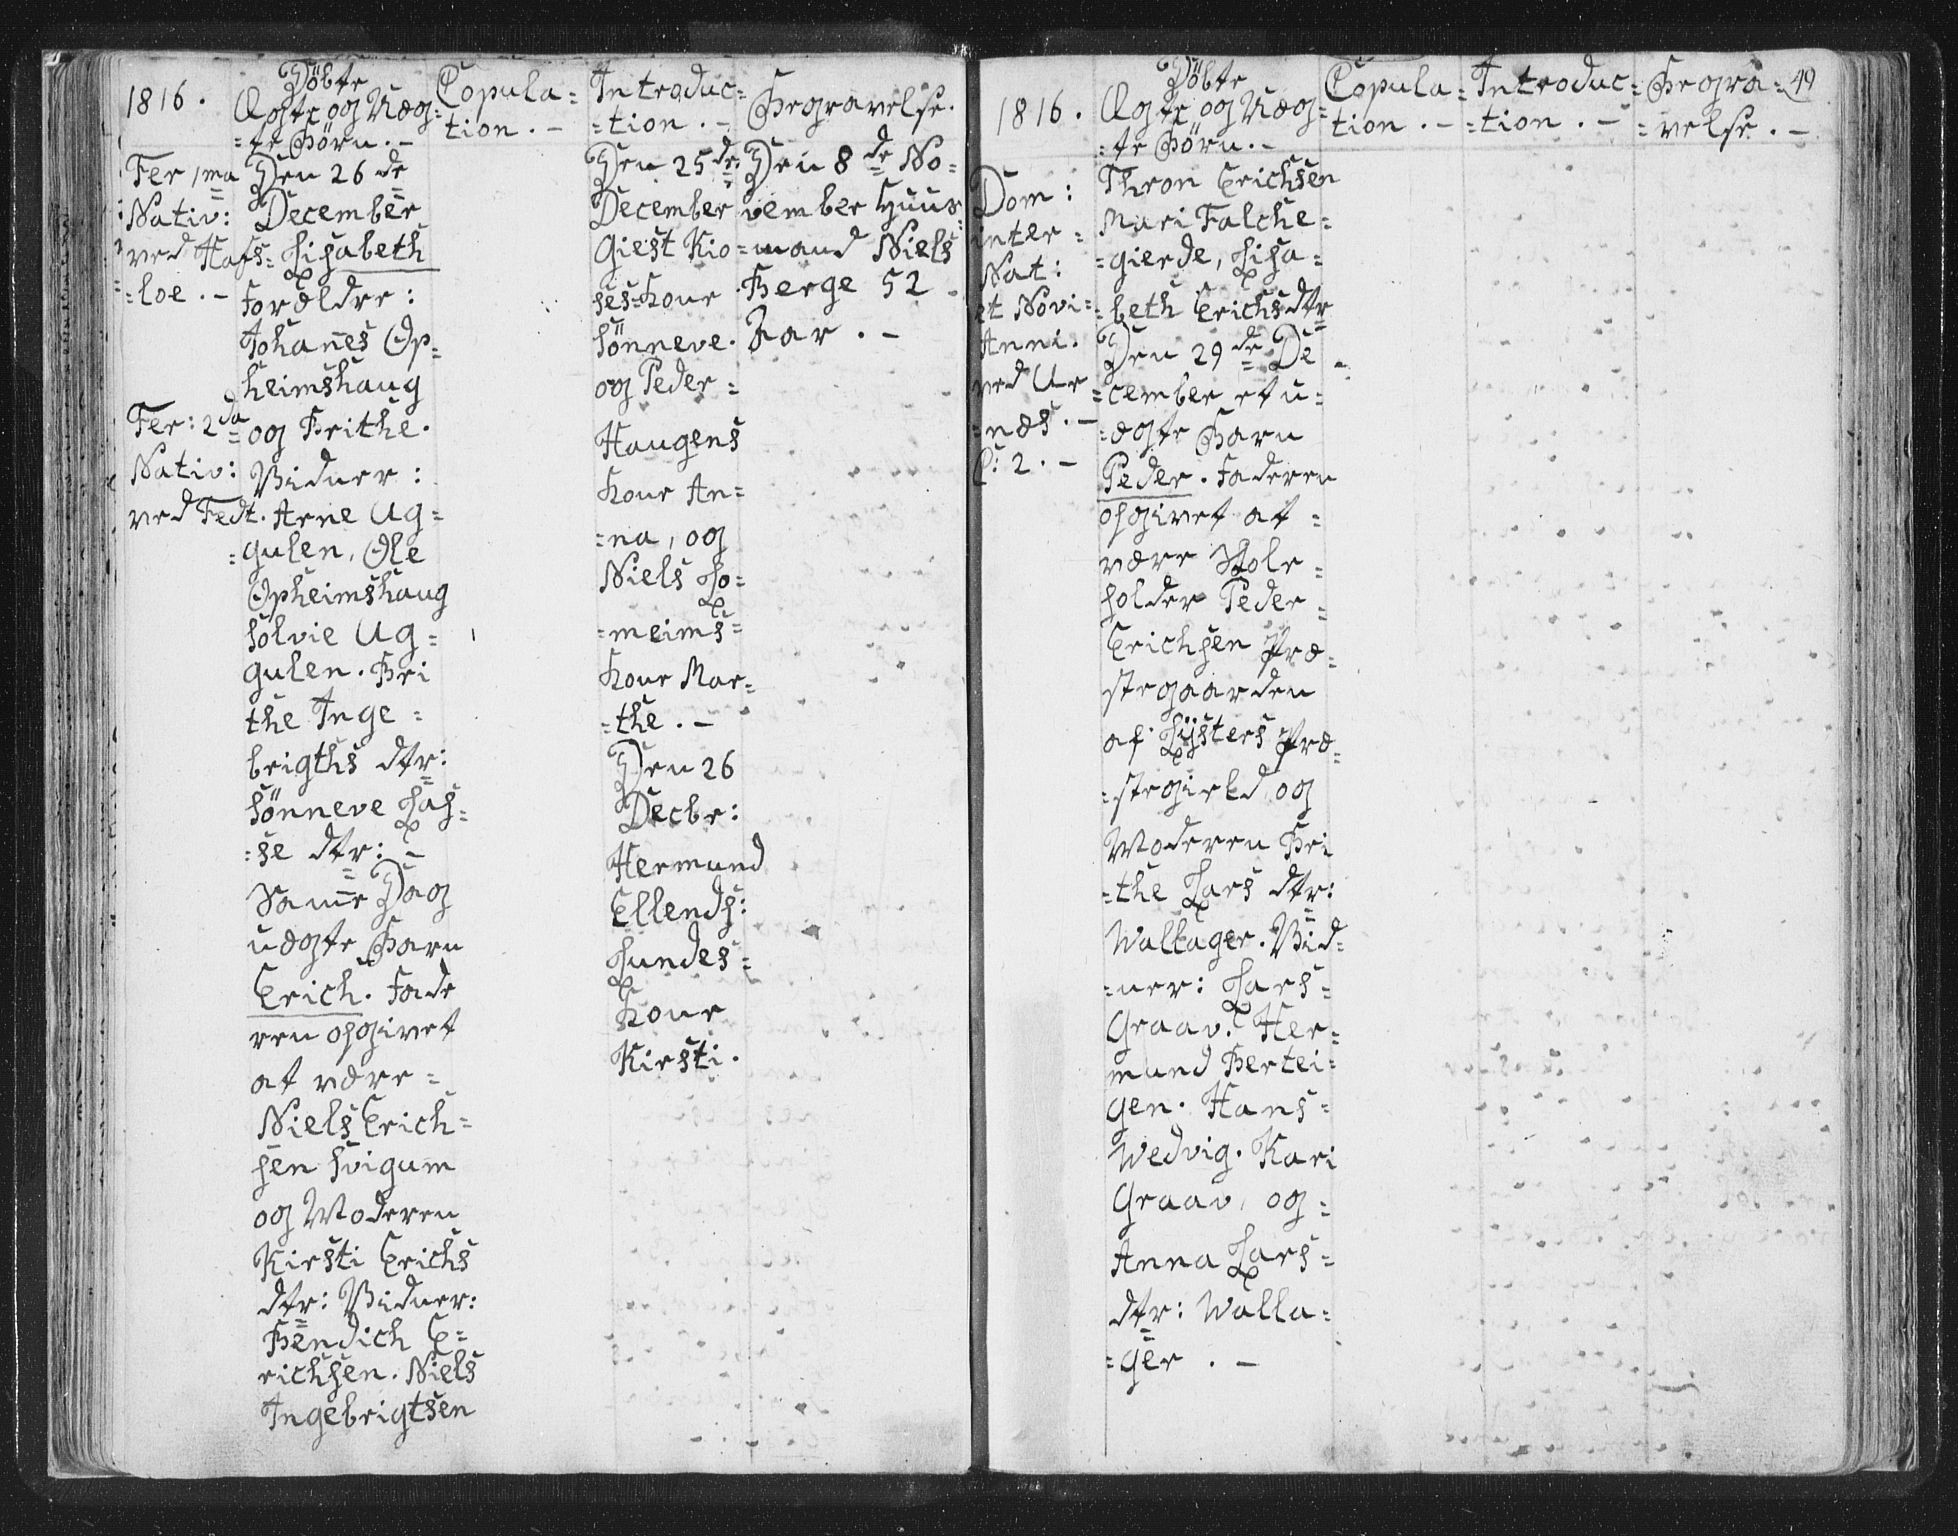 1816.
Döbte
Ægte og Uæg=
=te Börn. -
Copula=
tion. -
Introduc=
=tion. -
Begravelse.
Fer 1ma
Nativ:
ved Hafs=
=loe. -
Fer: 2da
Nativ:
ved Fedt.
Den 26de
December
Lisabeth
Forældre:
Johanes Op=
heimshaug
og Brithe.
Vidner:
Arne Ug=
=gulen, Ole
Opheimshaug
Sölvie Ug=
gulen. Bri
the Inge=
brigths dtr:
Sönneve Las=
=se dtr: -
Samme Dag
uægte Barn
Erich. Fade
ren opgivet
at være=
Niels Erich=
sen Svigum
og Moderen
Kirsti Erichs
dtr: Vidner:
Bendich E=
richsen. Niels
Ingebrigtsen
Den 25de
December
Giest Kio=
ses=Kone
Sönneve.
og Peder=
Haugens
Kone An=
=na, og
Niels Lo=
=meims=
Kone Mar=
=the. -
Den 26
Decbr:
Hermund
Ellends:
Lundes=
Kone
Kirsti.
Den 8de No=
vember Huus=
=mand Niels
Berge 52
Aar. -
1816.
Döbte
Ægte og Uæg=
=te Börn. -
Copula=
tion. -
Introduc=
=tion. -
Begra=
=velse. -
49
Dom:
inter=
Nat:
et Novi=
Anni.
ved Ur=
=næs. -
C: 2. -
Thron Erichsen
Mari Falche=
=gierde, Lisa=
=beth Erichsdtr
Den 29de De
=cember et u=
=ægte Barn
Peder. Faderen
opgivet at=
være Skole=
holder Peder=
Erichsen Præ=
stegaarden
af Lysters Præ=
=stegield og
Moderen Bri
=the Lars dtr:
Wallager. Vid=
=ner: Lars=
Graav. Her=
mund Bertei=
gen. Hans=
Wedvig. Kari
Graav, og=
Anna Lars=
dtr: Walla=
=ger. -